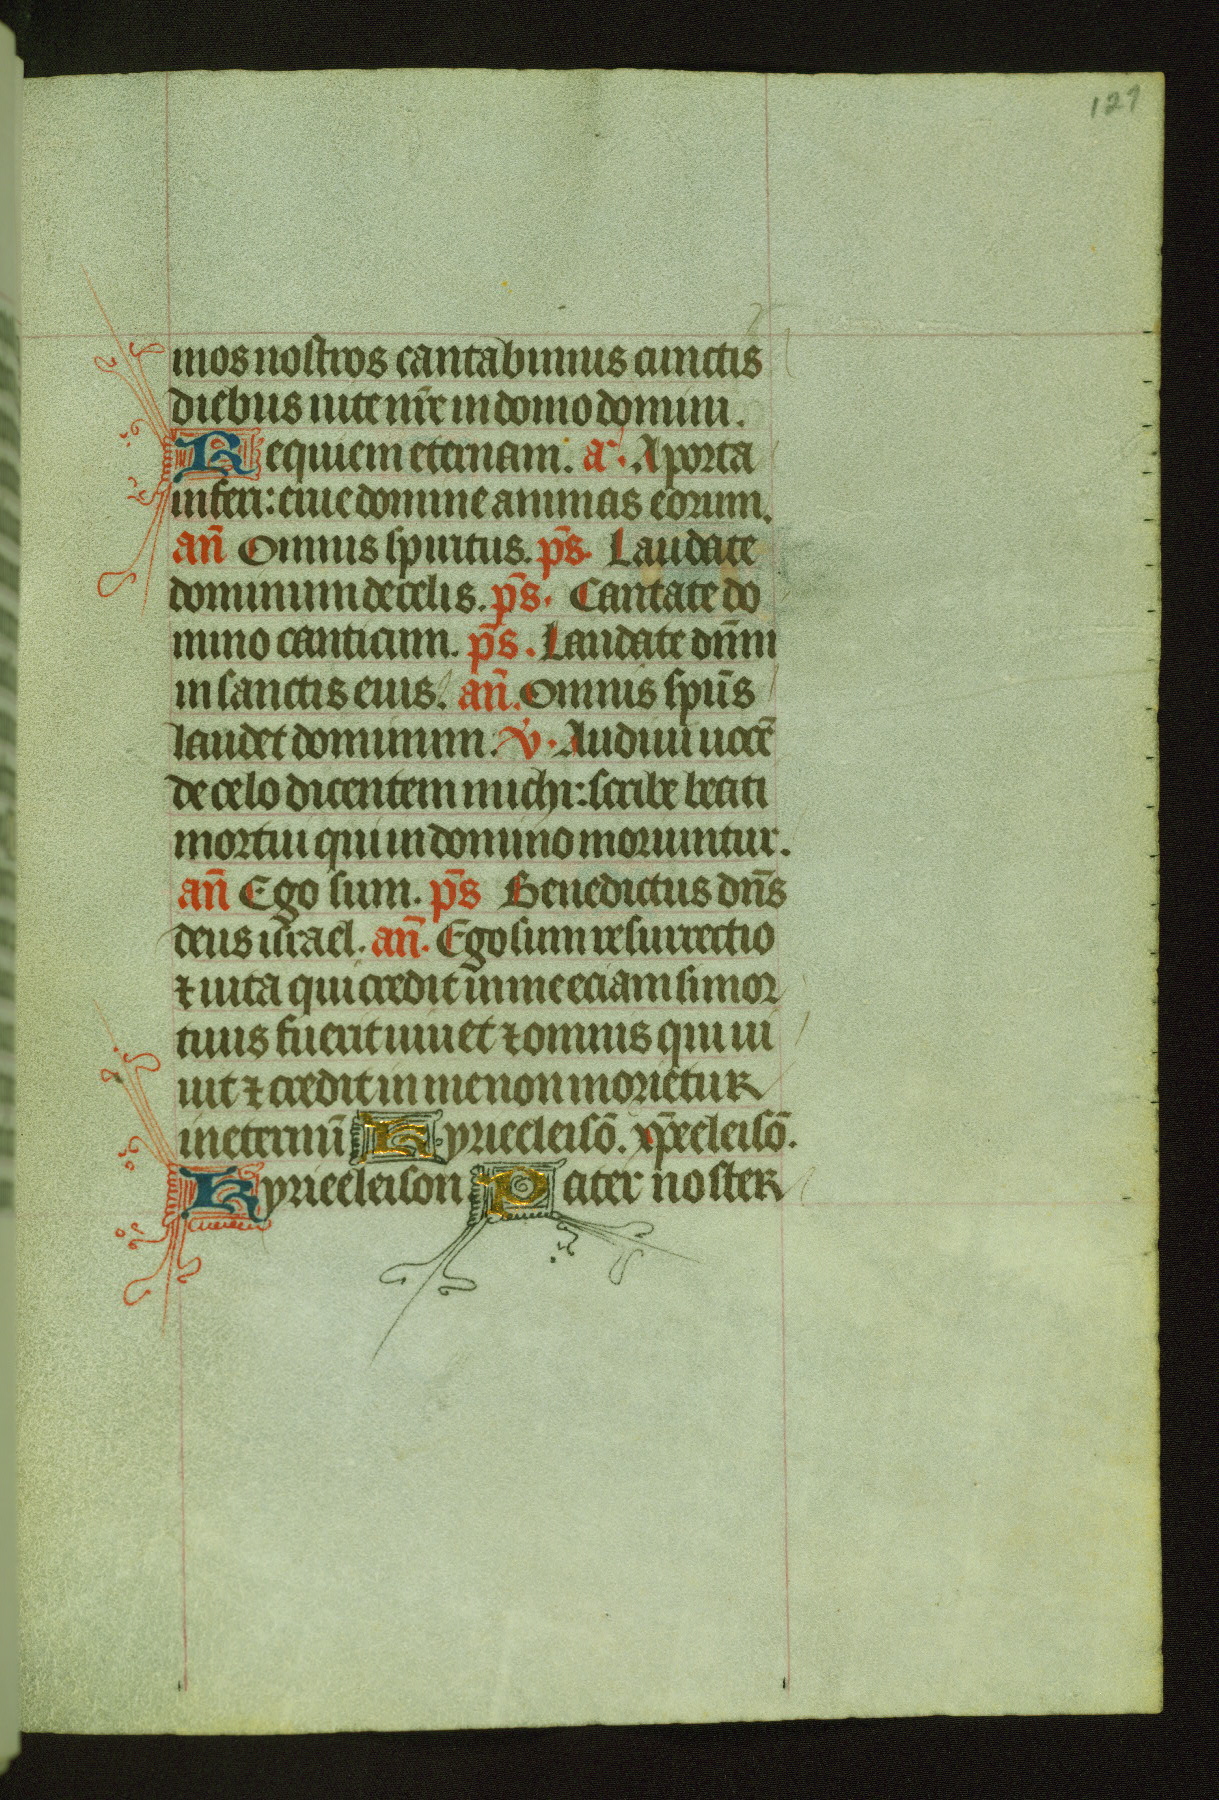 129
mos nostros cantabimus cunctis
diebus uite nr̄e in domo domini.
Requiem eternam. a. A porta
inferi: erue domine animas eorum.
an̄ Omnis spiritus. p̄s. Laudate
dominum de celis. p̄s. Cantate do
mino canticum. p̄s. Laudate dn̄m
in sanctis eius. an̄. Omnis sp̄us
laudet dominum. v. Audiui uocē
de celo dicentem michi: scribe beati
mortui qui in domino moriuntur.
an̄ Ego sum. p̄s Benedictus dn̄s
deus israel. an̄. Ego sum resurrectio
⁊ uita qui credit in me eciam si mor
tuus fuerit uiuet ⁊ omnis qui ui
uit ⁊ credit in me non morietur
in eternū Kyrieeleisō. xp̄eeleisō.
Kyrieeleison Pater noster